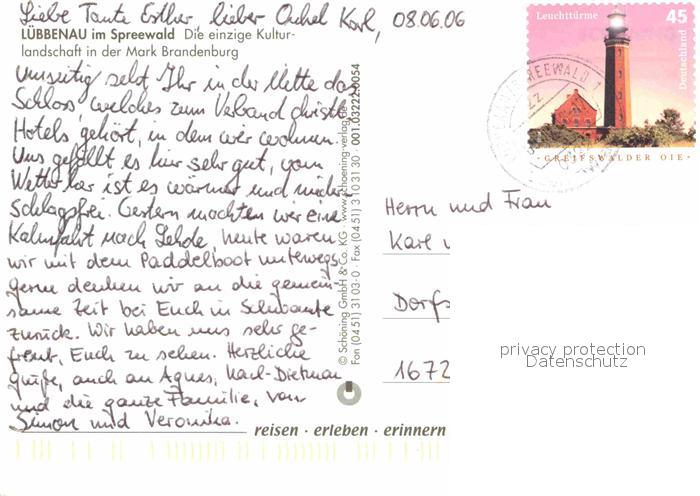 Liebe Tante Esther, lieber Onkel Karl, 08.06.06
LÜBBENAU im Spreewald Die einzige Kultur-
landschaft in der Mark Brandenburg
Umseitig seht Ihr in der Mitte das
Schloss, welches zum Verband christl.
Hotels gehört, in dem wir wohnen.
Uns gefällt es hier sehr gut, vom
Wetter her ist es wärmer und nieder-
schlagsfrei. Gestern machten wir eine
Kahnfahrt nach Lehde, heute waren
wir mit dem Paddelboot unterwegs.
gerne denken wir an die gemein-
same Zeit bei Euch in Schwante
zurück. Wir haben uns sehr ge-
freut, Euch zu sehen. Herzliche
grüße, auch an Agnes, Karl-Dietmar
und die ganze Familie, von
Simon und Veronika.
© Schöning GmbH & Co. KG · www.schoening-verlag.de
Fon (04 51) 3 10 3-0 · Fax (04 51) 3 10 31 30 · 001.03222.0054
reisen · erleben · erinnern
Leuchttürme 45
Deutschland
GREIFSWALDER OIE
Herrn und Frau
Karl
Dorfs
1672
privacy protection
Datenschutz